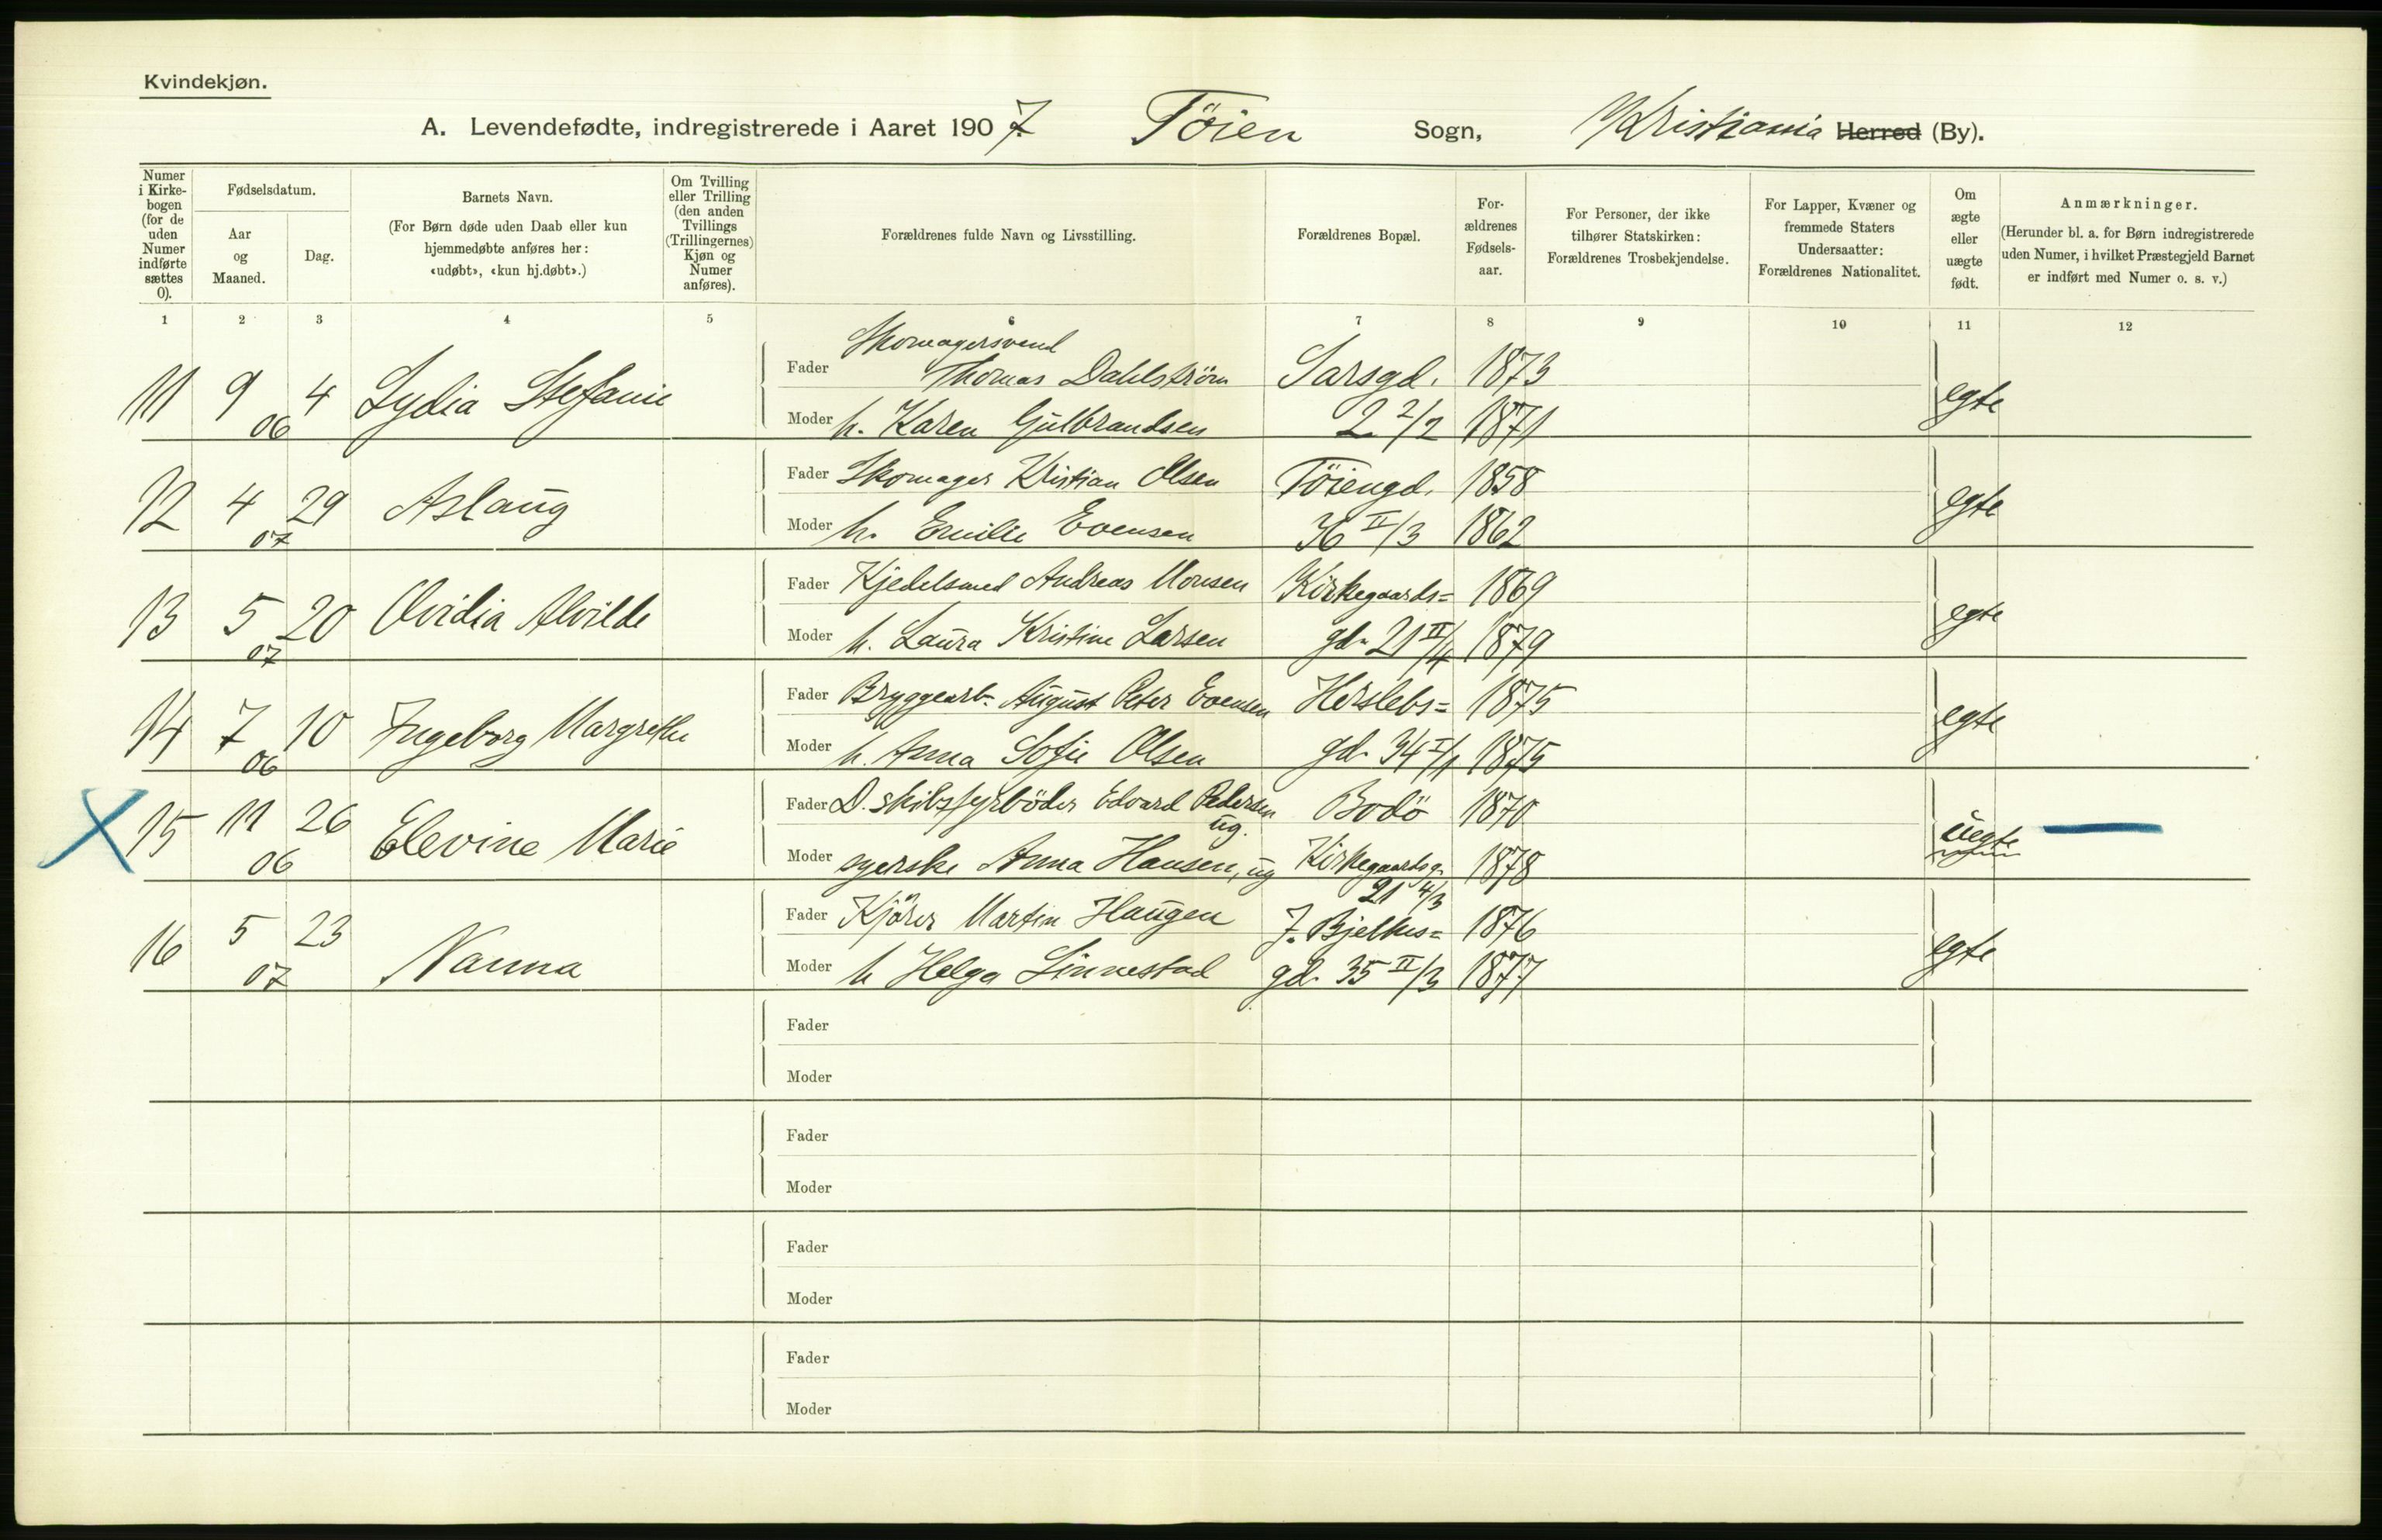 Kvindekjøn.
A. Levendefødte, indregistrerede i Aaret 1907. Töien Sogn, Kristiania Herred (By).
Numer i Kirkebogen (for de uden Numer indførte sættes 0).
Fødselsdatum.
Aar og Maaned.
Dag.
Barnets Navn.
(For Børn døde uden Daab eller kun hjemmedøbte anføres her: «udøbt», «kun hj.døbt».)
Om Tvilling eller Trilling (den anden Tvillings (Trillingernes) Kjøn og Numer anføres).
Forældrenes fulde Navn og Livsstilling.
Forældrenes Bopæl.
Forældrenes Fødselsaar.
For Personer, der ikke tilhører Statskirken: Forældrenes Trosbekjendelse.
For Lapper, Kvæner og fremmede Staters Undersaatter: Forældrenes Nationalitet.
Om ægte eller uægte født.
Anmærkninger.
(Herunder bl. a. for Børn indregistrerede uden Numer, i hvilket Præstegjeld Barnet er indført med Numer o. s. v.)
1 2 3 4 5 6 7 8 9 10 11 12
11 9 06 4 Lydia Stefanie
Fader Skomagersvend Thomas Dahlström Sarsgd. 1873
Moder h. Karen Gulbrandsen 2 2/2 1871 egte
12 4 07 29 Aslaug
Fader Skomager Kristian Olsen Töiengd. 1858
Moder h. Emilie Evensen 36 II/3 1862 egte
13 5 07 20 Ovidia Alvilde
Fader Kjedelsmed Andreas Monsen Kirkegaards= 1869
Moder h. Laura Kristine Larsen gd. 21 II/4 1879 egte
14 7 06 10 Ingeborg Margrethe
Fader Bryggearb. August Peter Evensen Herslebs= 1875
Moder h. Anna Sofie Olsen gd. 34 I/1 1875 egte
15 11 06 26 Elevine Marie
Fader D. skibsfyrböder Edvard Pedersen ug. Bodö 1870
Moder syerske Anna Hansen, ug Kirkegaardsg. 21 4/3 1878 uegte
16 5 07 23 Nanna
Fader Kjörer Martin Haugen J. Bjelkes= 1876
Moder h Helga Linnestad gd. 35 II/3 1877 egte
Fader
Moder
Fader
Moder
Fader
Moder
Fader
Moder